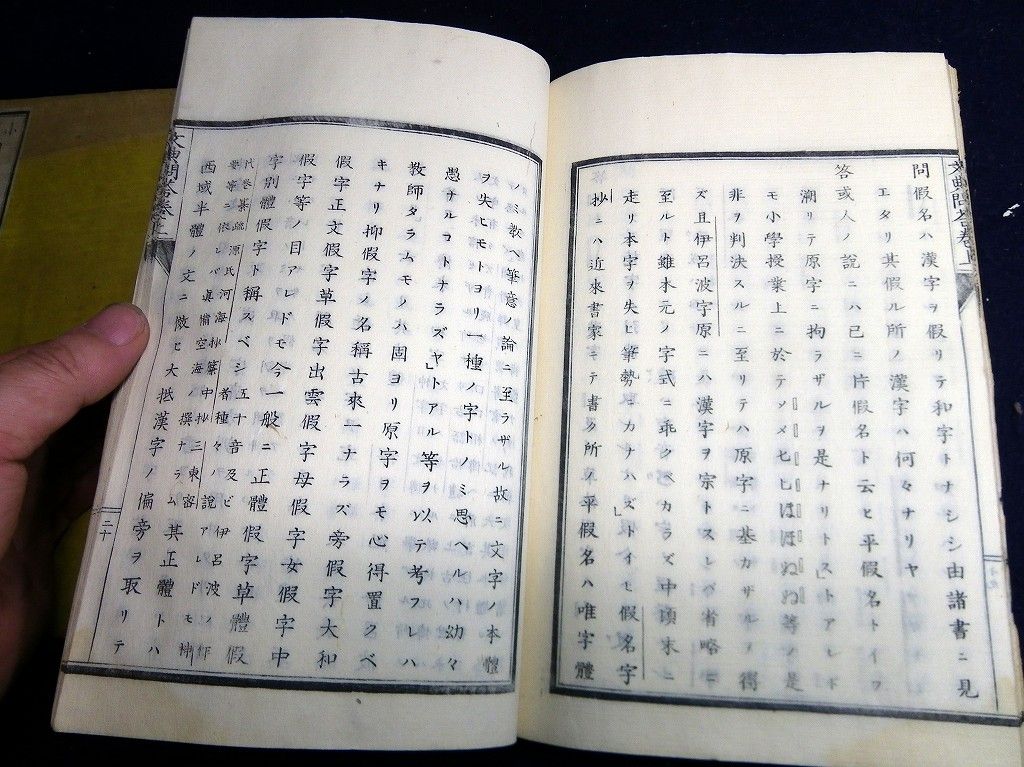 問假名ハ漢字ヲ假リテ和字トナシシ由諸書ニ見
エタリ其假ル所ノ漢字ハ何々ナリヤ
答或人ノ說ニハ已ニ片假名ト云ヒ平假名トイフ
溯リテ原字ニ拘ラザルヲ是ナリトス」トアレドモ
モ小學授業上ニ於テメメヒヒほほねね等ノ是
非ヲ判決スルニ至リテハ原字ニ基カザルヲ得
ズ且伊呂波字原ニハ漢字ヲ宗トスレバ省略ニ
至ルト雖本元ノ字式ニ乖クベカラズ中頃末ニ
走リ本字ヲ失ヒ筆勢ヲカナハズトイモ假名字
抄ニハ近來書家ニテ書ク所ノ平假名ハ唯字體
ノミ教ヘ筆意ノ論ニ至ラザル故ニ文字ノ本體
ヲ失ヒモトヨリ一種ノ字トノミ思ヘルハ幼々
愚ナルコトナラズヤ」トアル等ヲ以テ考フレハ
教師タラムモノハ固ヨリ原字ヲモ心得置クベ
キナリ抑假字ノ名稱古來一ナラズ旁假字大和
假字正文假字草假字出雲假字母假字女假字中
假字等ノ目アレドモ今一般ニ正體假字草體假
字別體假字ト稱スベシ五十音及ビ伊呂波ノ作
者種々ノ說アレドモ神
西域半體ノ文ニ倣ヒ大抵漢字ノ偏旁ヲ取リテ
二十